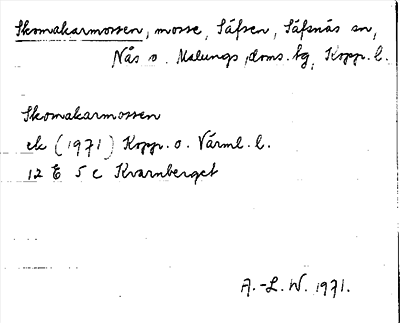 Skomakarmossen, mosse, Säfsen, Säfsnäs sn,
Nås o. Malungs doms. hg, Kopp. l.
Skomakarmossen
ek (1971) Kopp. o. Värml. l.
12 E 5 c Kvarnberget
A.-L. W. 1971.